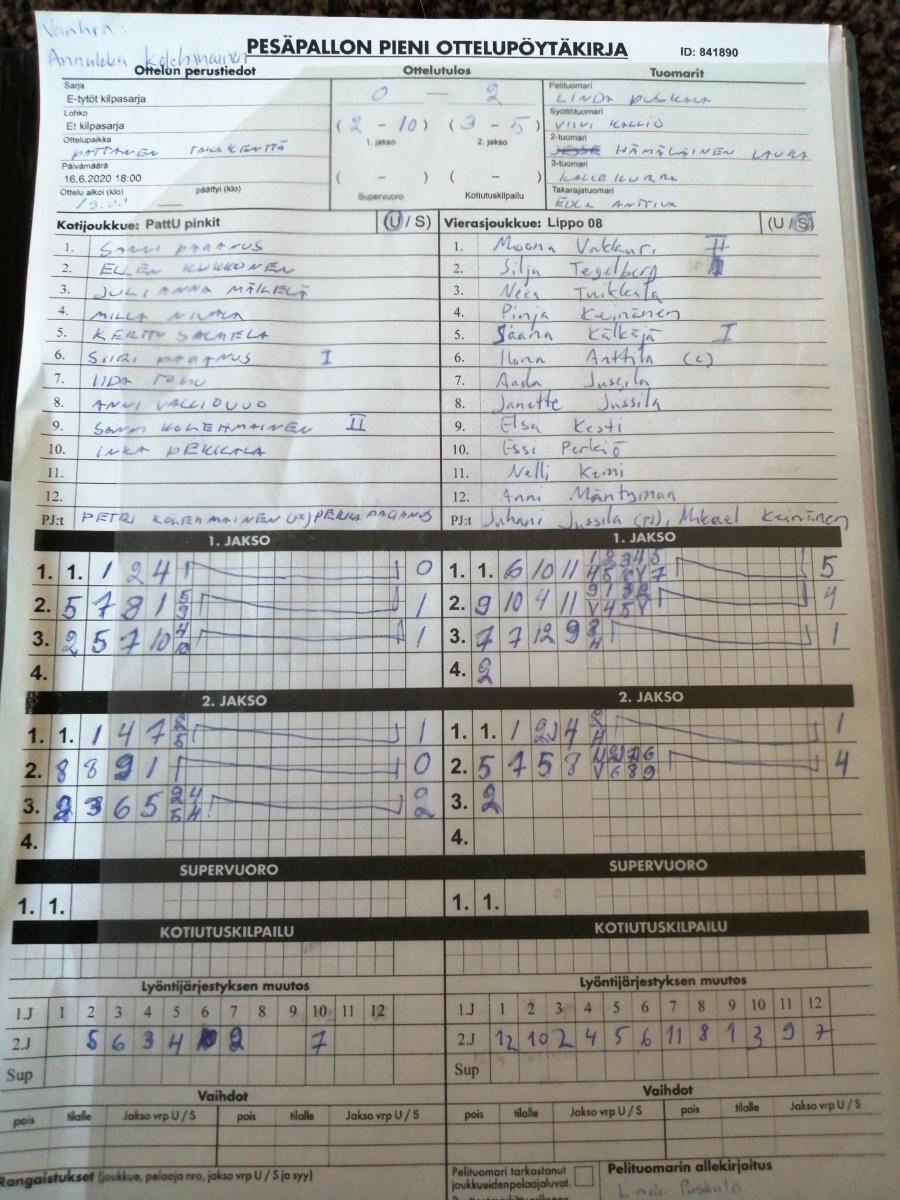 Vanhin:
Annukka Kolehmainen
PESÄPALLON PIENI OTTELUPÖYTÄKIRJA ID: 841890
Ottelun perustiedot Ottelutulos Tuomarit
Sarja
E-tytöt kilpasarja
Lohko
Et kilpasarja
Ottelupaikka
PATTANEN TAKAKENTTÄ
Päivämäärä
16.6.2020 18:00
Ottelu alkoi (klo) päättyi (klo)
0 — 2
( 2 - 10 ) ( 3 - 5 )
1. jakso 2. jakso
( - ) ( - )
Supervuoro Kotiutuskilpailu
Pelituomari
LINDA PUSKALA
Syöttötuomari
VIIVI KALLIO
2-tuomari
HÄMÄLÄINEN LAURA
3-tuomari
KALLE KURRA
Takarajatuomari
EDLA ANTTILA
Kotijoukkue: PattU pinkit (U / S)
1. SANNI PAGANUS
2. ELLEN KUKKONEN
3. JULIANNA MÄIKELÄ
4. MILLA
5. KERTTU
6. SIIRI PAGANUS I
7. IIDA
8. ANNI
9. SANNI KOLEHMAINEN II
10. INKA PEKKALA
11.
12.
PJ:t PETRI KOLEHMAINEN (PJ) PEKKA PAGANUS
Vierasjoukkue: Lippo 08 (U / S)
1. Moona Vakkuri II
2. Silja Tegelberg
3. Neea Tuikkala
4. Pinja Keinänen
5. Saana Kälkäjä I
6. Ilona Anttila (c)
7. Aada Jussila
8. Janette Jussila
9. Elsa Kesti
10. Essi Perkiö
11. Nelli Kemi
12. Anni Mäntymaa
PJ:t Juhani Jussila (PJ), Mikael Keinänen
1. JAKSO
1. 1. 1 2 4 0
2. 5 7 8 1 1
3. 2 5 7 10 1
4.
1. JAKSO
1. 1. 6 10 11 5
2. 9 10 4 11 4
3. 7 7 12 9 1
4. 2
2. JAKSO
1. 1. 1 4 7 1
2. 8 8 9 1 0
3. 2 3 6 5 2
4.
2. JAKSO
1. 1. 1 2 4 1
2. 5 7 5 8 4
3. 2
4.
SUPERVUORO
1. 1.
SUPERVUORO
1. 1.
KOTIUTUSKILPAILU
KOTIUTUSKILPAILU
Lyöntijärjestyksen muutos
1.J 1 2 3 4 5 6 7 8 9 10 11 12
2.J 5 6 3 4 10 2 7
Sup
Lyöntijärjestyksen muutos
1.J 1 2 3 4 5 6 7 8 9 10 11 12
2.J 12 10 2 4 5 6 11 8 1 3 9 7
Sup
Vaihdot
pois tilalle Jakso vrp U / S pois tilalle Jakso vrp U / S
Vaihdot
pois tilalle Jakso vrp U / S pois tilalle Jakso vrp U / S
Rangaistukset (joukkue, pelaaja nro, jakso vrp U / S ja syy)
Pelituomari tarkastanut
joukkueidenpelaajaluvat.
Pelituomarin allekirjoitus
Linda Puskala